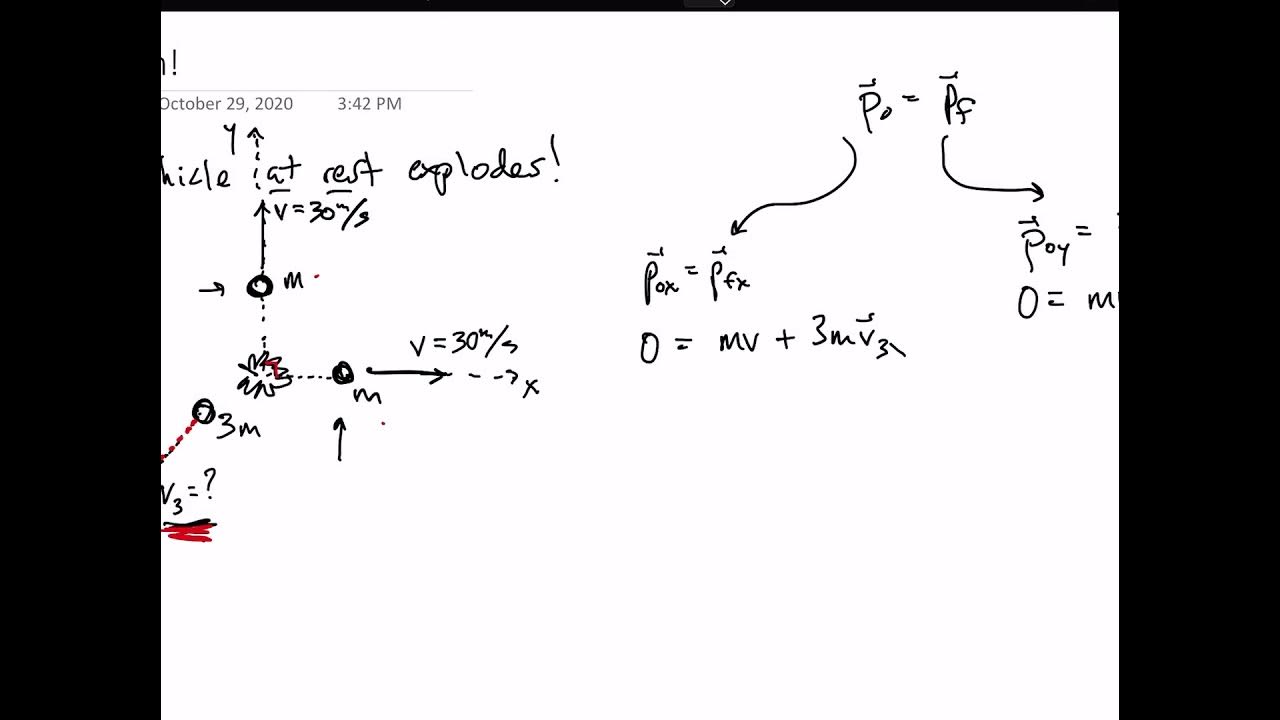 n!
October 29, 2020 3:42 PM
y
hicle at rest explodes!
v = 30 m/s
m
v = 30 m/s
x
m
3m
v₃ = ?
p⃗₀ = p⃗f
p⃗₀ₓ = p⃗fₓ
0 = mv + 3m v⃗₃
p⃗₀y =
0 = m